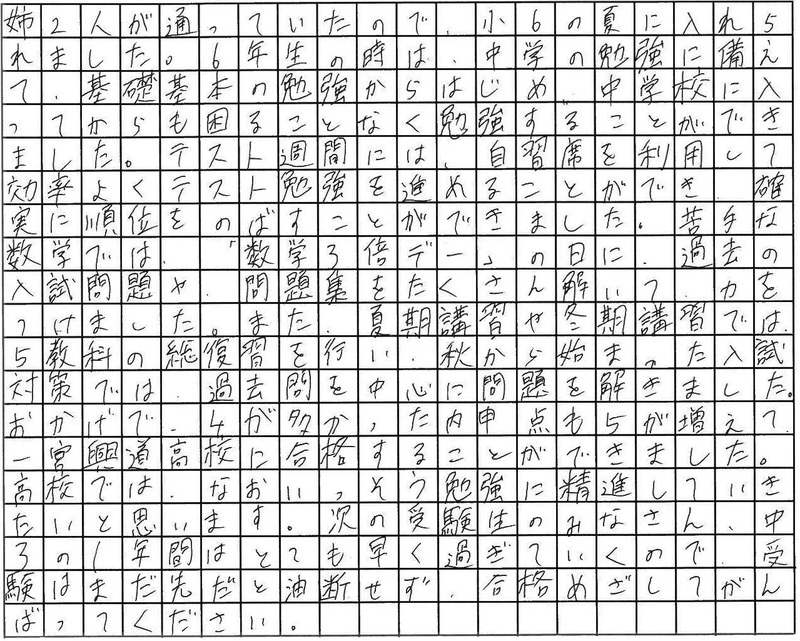 姉2人が通っていたので、小6の夏に入れら
れました。6年生の時は、中学の勉強に備え
て、基礎基本の勉強からはじめ、中学校に入
ってからも困ることなく勉強することができ
ました。テスト週間には、自習席を利用して
効率よくテスト勉強を進めることができ、確
実に順位をのばすことができました。苦手な
数学では、「数学3倍デー」の日に、過去の
入試問題や、問題集をたくさん解いて、力を
つけました。また、夏期講習や冬期講習では、
5教科の総復習を行い、秋から始まった入試
対策では、過去問を中心に問題を解きました。
おかげで、4が多かった内申点も5が増えて、
一宮興道高校に合格することができました。
高校では、なおいっそう勉強に精進していき
たいと思います。次の受験生のみなさん、中
3の1年間はとても早く過ぎていくので、受
験はまだ先だと油断せず、合格めざしてがん
ばってください。